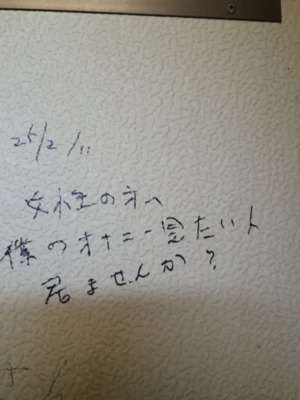 25/2/11
女性の方へ
僕のオナニー見たい人
居ませんか?